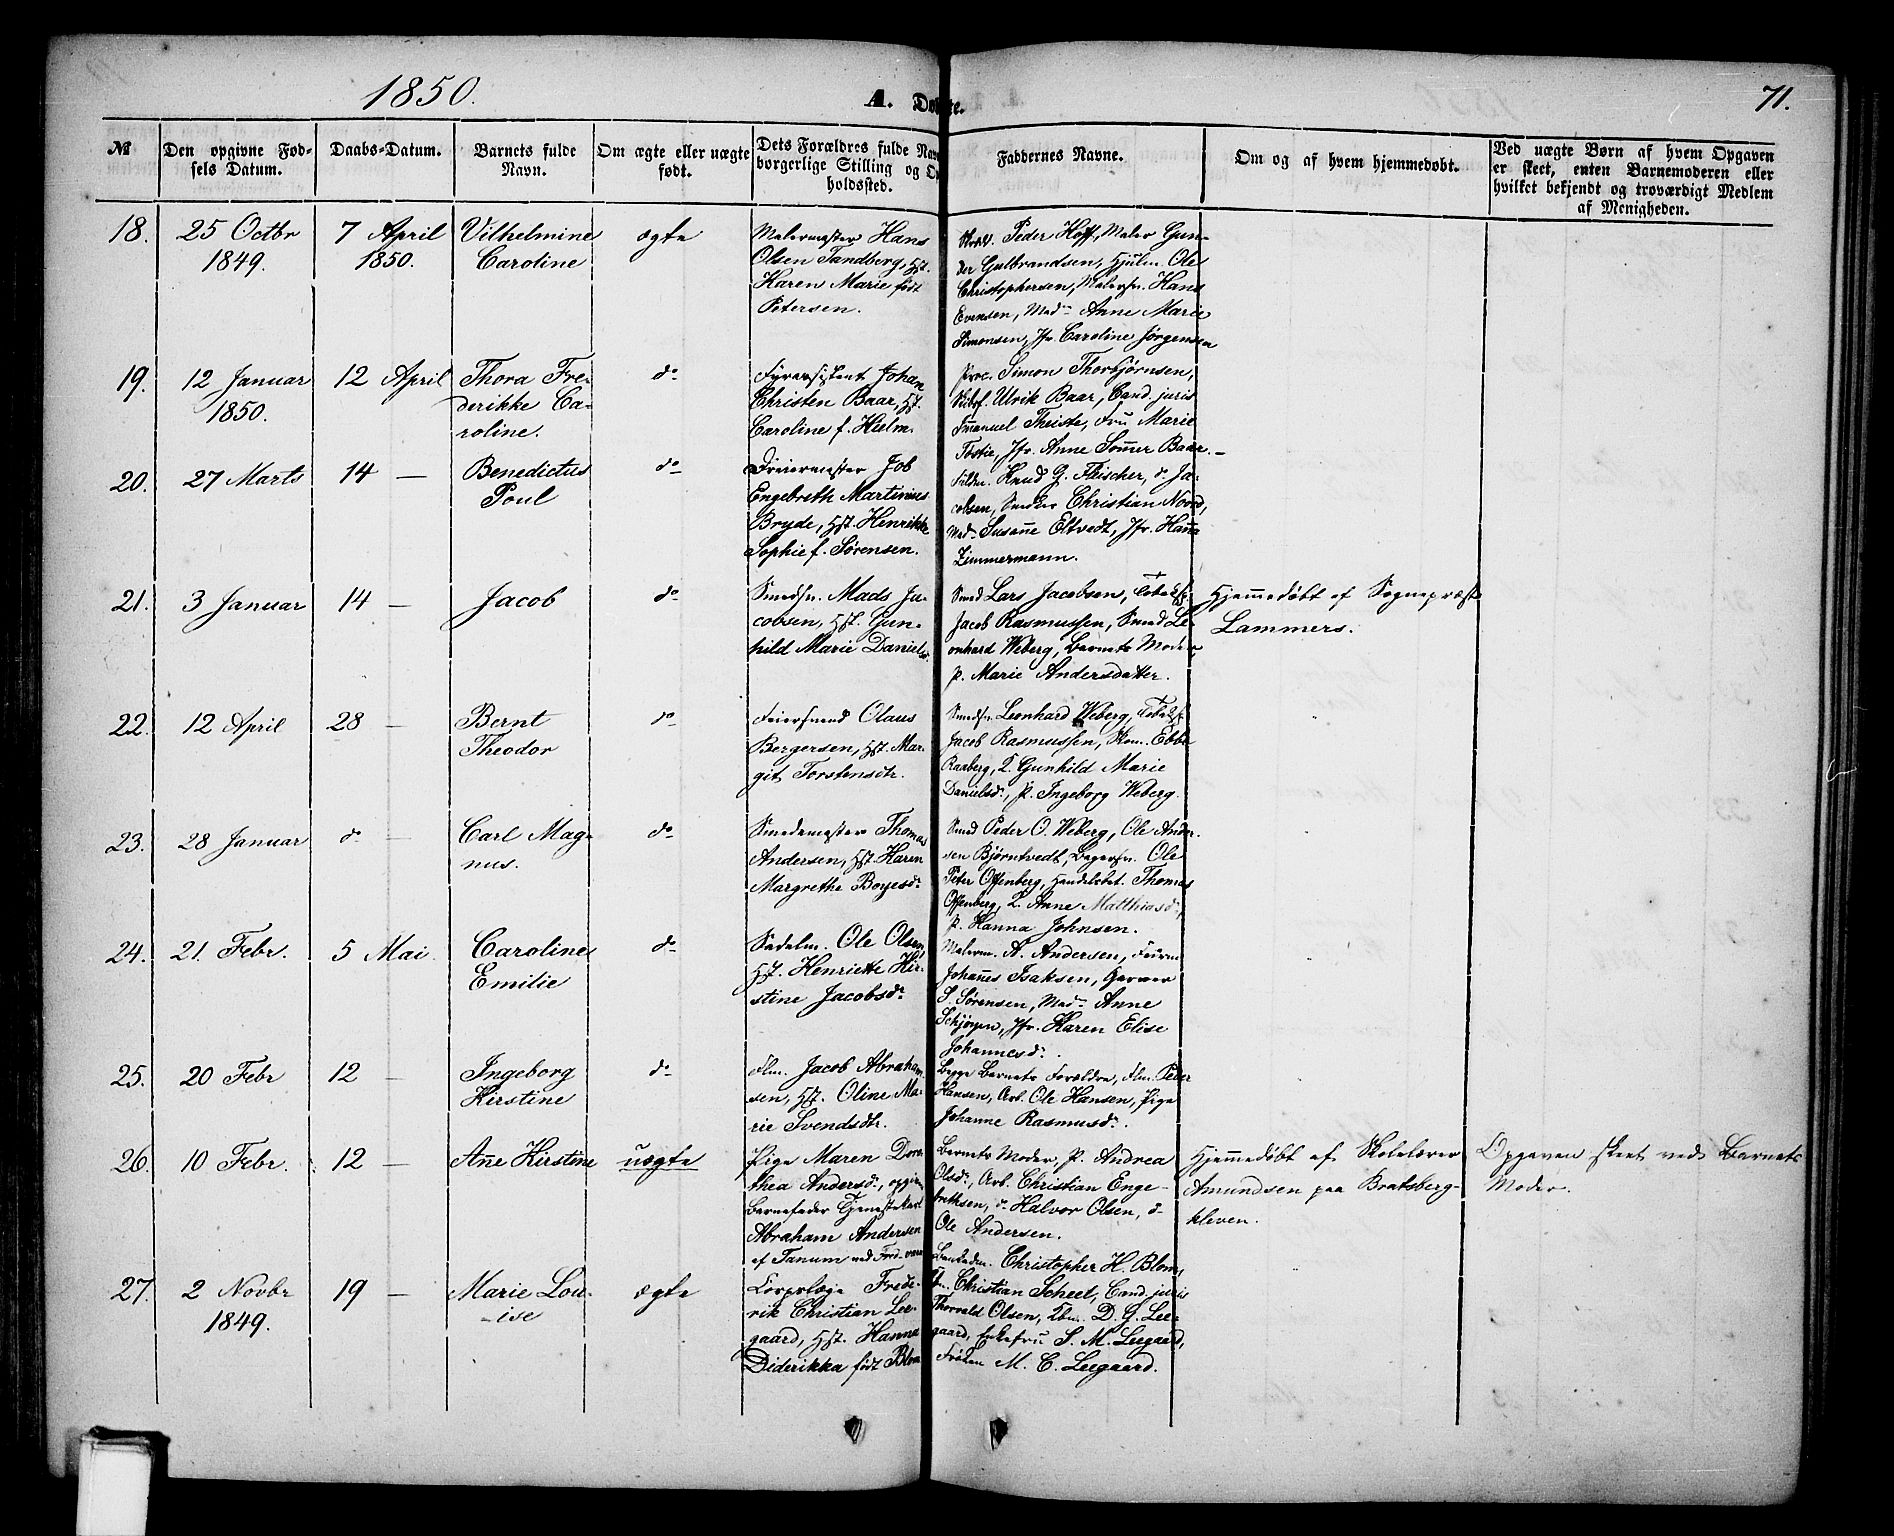 1850.
A. Døbte.
71.
№
Den opgivne Fød-
sels Datum.
Daabs-Datum.
Barnets fulde
Navn.
Om ægte eller uægte
født.
Dets Forældres fulde Nav
borgerlige Stilling og O
holdssted.
Faddernes Navne.
Om og af hvem hjemmedøbt.
Ved uægte Børn af hvem Opgaven
er skeet, enten Barnemoderen eller
hvilket bekjendt og troværdigt Medlem
af Menigheden.
18.
25 Octbr
1849.
7 April
1850.
Vilhelmine
Caroline
ægte
Malermester Hans
Olsen Tandberg, Hst.
Karen Marie født
Petersen.
Peder Hoff, Maler Gun-
der Gulbrandsen, Hjulm. Ole
Christophersen, Malersv. Hans
Evensen, Mad. Anne Marie
Simonsen, Jfr. Caroline Jørgensen
19.
12 Januar
1850.
12 April
Thora Fre-
derikke Ca-
roline.
do
Fyrassistent Johan
Christen Baar, Hst.
Caroline f. Hielm.
Proc. Simon Thorbjørnsen,
Skibsf. Ulrik Baar, Cand. juris
Emanuel Theiste, Fru Marie
Tostie, Jfr. Anne Somer Baar.
20.
27 Marts
14 —
Benedictus
Poul
do
Dreiermester Job
Engebreth Martinius
Bryde, Hst. Henrikke
Sophie f. Sørensen.
Knud G. Fleischer, do Ja-
cobsen, Snedker Christian Noord,
Mad. Susanne Eltvedt, Jfr. Hanna
Zimmermann.
21.
3 Januar
14 —
Jacob
do
Smedsv. Mads Ja-
cobsen, Hst. Gun-
hild Marie Daniels
Smed Lars Jacobsen,
Jacob Rasmussen, Smed Le-
onhard Weberg, Barnets Moder
P. Marie Andersdatter.
Hjemmedøbt af Sognepræst
Lammers.
22.
12 April
28 —
Bernt
Theodor
do
Feiersvend Olaus
Bergersen, Hst. Mar-
git Torstensdtr.
Smedsv. Leonhard Weberg,
Jacob Rasmussen, Skom. Ebbe
Raaberg, K. Gunhild Marie
Danielsd., P. Ingeborg Weberg.
23.
28 Januar
do —
Carl Mag-
nus.
do
Smedemester Thomas
Andersen, Hst. Karen
Margrethe Boyesdr
Smed Peder O. Weberg, Ole Ander-
sen Bjørntvedt, Bagersv. Ole
Peter Offenberg, Handelsbet. Thomas
Offenberg, K. Anne Matthiasd.,
P. Hanna Johnsen.
24.
21. Febr.
5 Mai.
Caroline
Emilie
do
Sadelm. Ole Olsen,
Hst. Henriette Kir-
stine Jacobsdr
Malerm. A. Andersen,
Johanes Isaksen, Garver
S. Sørensen, Mad. Anne
Schjørgen, Jfr. Karen Elise
Johannesd.
25.
20 Febr
12 —
Ingeborg
Kirstine
do
Flm. Jacob Abraham
sen, Hst. Oline Ma-
rie Svendsdtr.
Begge Barnets Forældre, Flm. Peder
Hansen, Arb. Ole Hansen, Pige
Johanne Rasmusd.
26.
10 Febr.
12 —
Ane Kirstine
uægte
Pige Maren Doro
thea Andersd., opgiv.
Barnefader Tjenestekarl
Abraham Andersen
af Tanum ved Fred.værn
Barnets Moder, P. Andrea
Olsd., Arb. Christian Enge-
brethsen, do Halvor Olsen, do
Ole Andersen.
Hjemmedøbt af Skolelærer
Amundsen paa Bratsberg-
kleven.
Opgaven skeet ved Barnets
Moder.
27.
2 Novbr
1849.
19 —
Marie Lou-
ise
ægte
Corpslæge Frede-
rik Christian Lee-
gaard, Hst. Hanna
Diderikka født Blom
Christopher H. Blom,
Christian Scheel, Cand. juris
Thorvald Olsen, Kbm. D. G. Lee-
gaard, Enkefru S. M. Leegaard,
Frøken M. C. Leegaard.